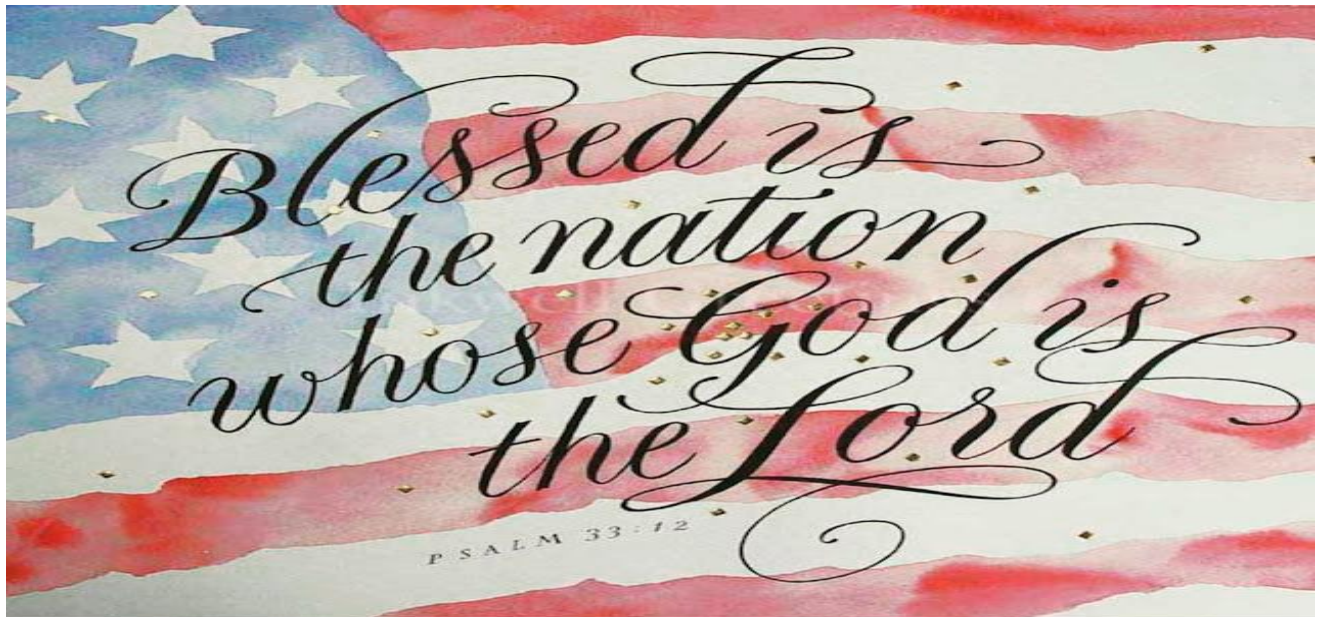 Blessed is
the nation
whose God is
the Lord
PSALM 33:12